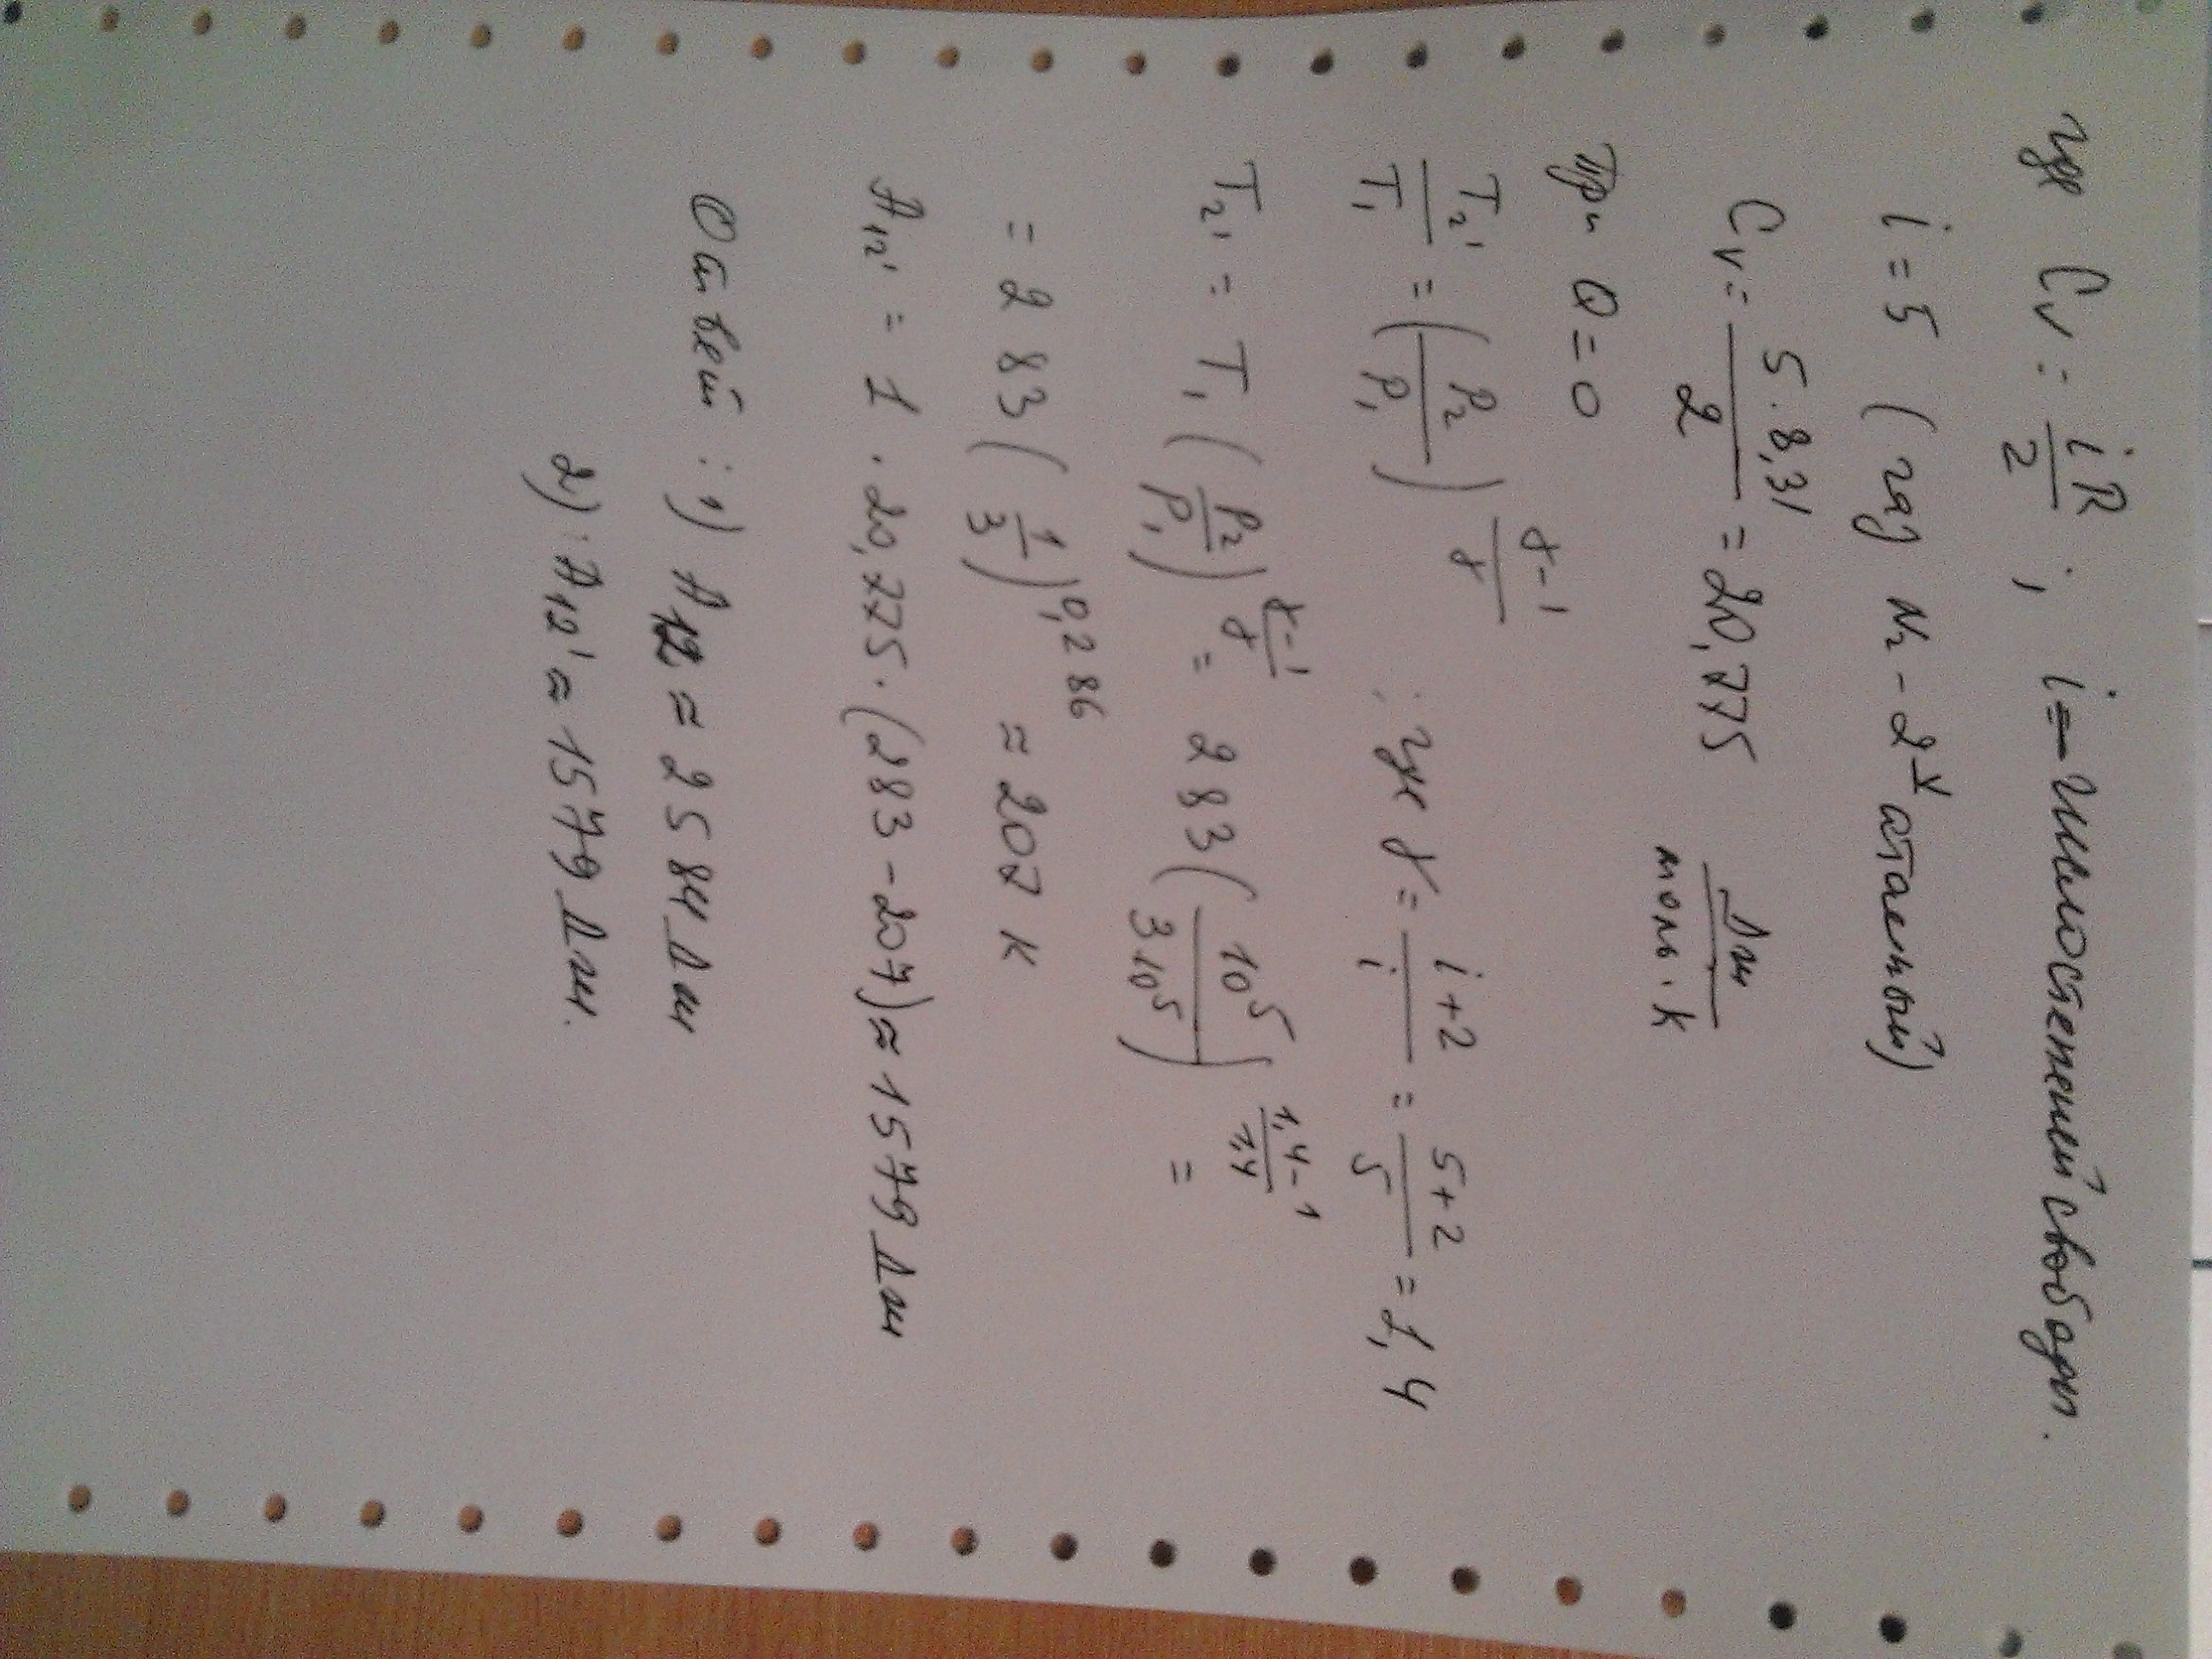 где Cv = iR/2 ; i – число степеней свободы.
i = 5 (газ N₂ – 2ˣ атомный)
Cv = 5·8,31/2 = 20,775 Дж/моль·К
При Q = 0
T₂'/T₁ = (P₂/P₁)^((γ-1)/γ) ; где γ = (i+2)/i = (5+2)/5 = 1,4
T₂' = T₁ (P₂/P₁)^((γ-1)/γ) = 283 (10⁵/3·10⁵)^((1,4-1)/1,4) =
= 283 (1/3)^0,286 ≈ 207 К
A₁₂' = 1 · 20,775 · (283 - 207) ≈ 1579 Дж
Ответ: 1) A₁₂ ≈ 2584 Дж
2) : A₁₂' ≈ 1579 Дж.